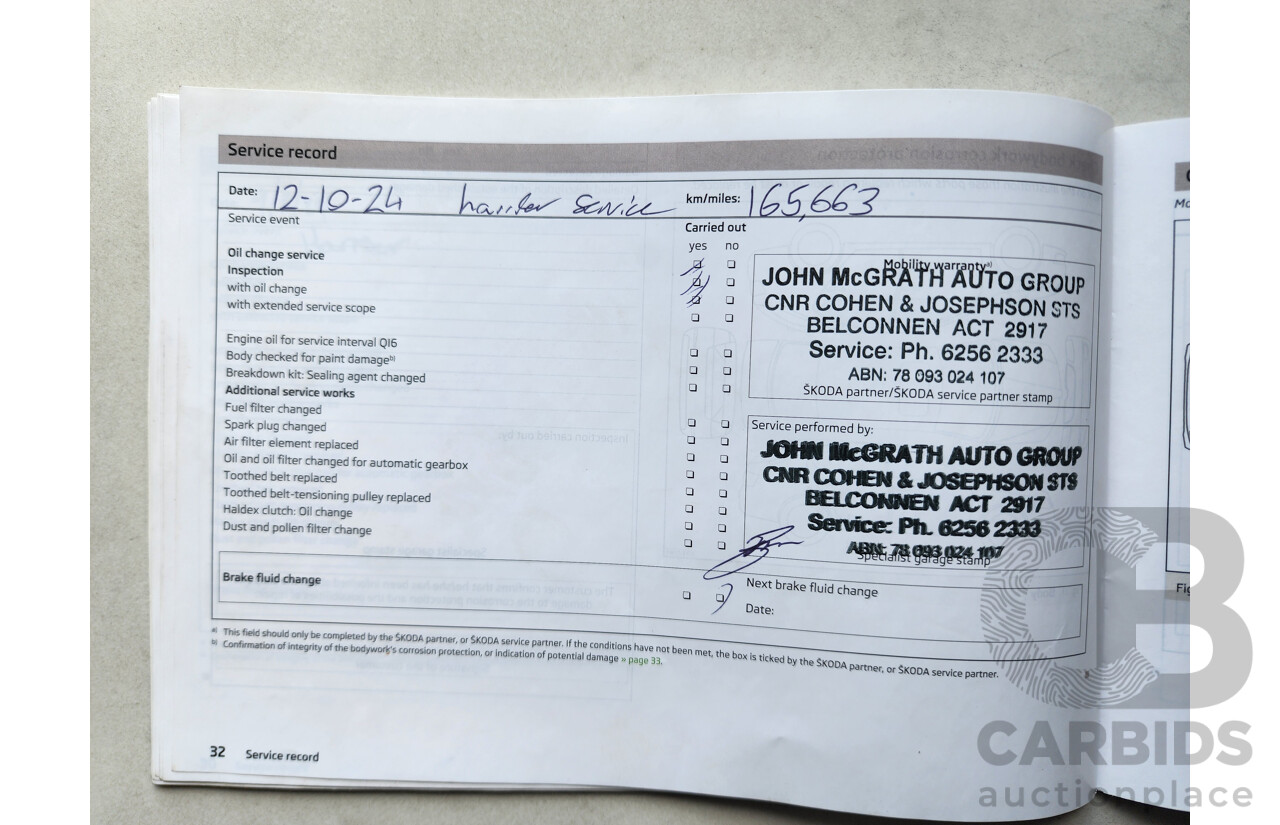 Service record
Date: 12-10-24 service km/miles: 165,663
Service event
Carried out
yes no
Oil change service
Inspection
with oil change
with extended service scope
Engine oil for service interval QI6
Body checked for paint damage b)
Breakdown kit: Sealing agent changed
Additional service works
Fuel filter changed
Spark plug changed
Air filter element replaced
Oil and oil filter changed for automatic gearbox
Toothed belt replaced
Toothed belt-tensioning pulley replaced
Haldex clutch: Oil change
Dust and pollen filter change
Mobility warranty a)
JOHN McGRATH AUTO GROUP
CNR COHEN & JOSEPHSON STS
BELCONNEN ACT 2917
Service: Ph. 6256 2333
ABN: 78 093 024 107
ŠKODA partner/ŠKODA service partner stamp
Service performed by:
JOHN McGRATH AUTO GROUP
CNR COHEN & JOSEPHSON STS
BELCONNEN ACT 2917
Service: Ph. 6256 2333
ABN: 78 093 024 107
Specialist garage stamp
Brake fluid change
Next brake fluid change
Date:
a) This field should only be completed by the ŠKODA partner, or ŠKODA service partner. If the conditions have not been met, the box is ticked by the ŠKODA partner, or ŠKODA service partner.
b) Confirmation of integrity of the bodywork's corrosion protection, or indication of potential damage » page 33.
32 Service record
CARBIDS
auctionplace